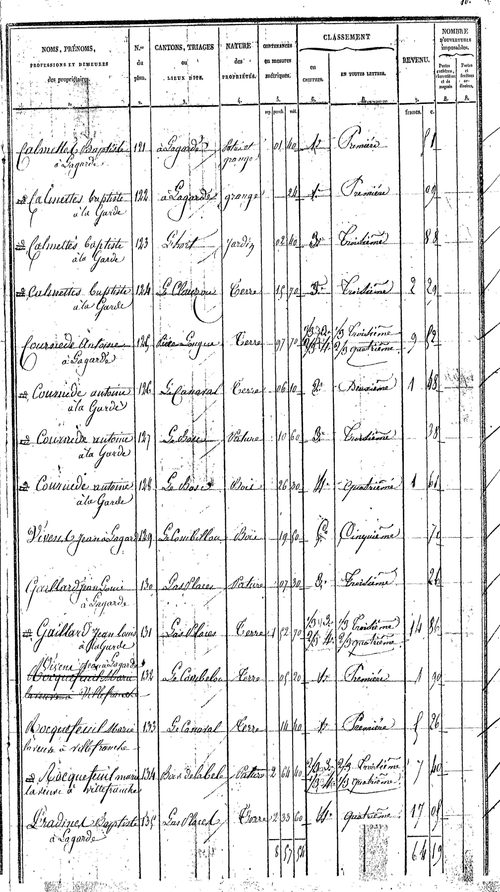 NOMS, PRÉNOMS, PROFESSIONS ET DEMEURES des propriétaires. | N.os du plan. | CANTONS, TRIAGES ou LIEUX DITS. | NATURE des PROPRIÉTÉS. | CONTENANCES en mesures métriques. | CLASSEMENT en CHIFFRES. | en TOUTES LETTRES. | REVENU. | NOMBRE D'OUVERTURES imposables.
francs. c.
Calmettes Baptiste à Lagarde 121 à Lagarde grange 01 40 1e Première 51
Calmettes baptiste à la Garde 122 à Lagarde grange 24 1e Première 09
Calmettes baptiste à la Garde 123 L'hort Jardin 02 40 3e Troisième 88
Calmettes baptiste à la Garde 124 Terre 15 70 3e Troisième 2 29
Courniède Antoine à Lagarde 125 Terre 97 70 1/3 3e 2/3 4e 1/3 Troisième 2/3 quatrième 9 52
Courniède antoine à la Garde 126 Le Canaval Terre 06 10 2e Deuxième 1 48
Courniède antoine à la Garde 127 Le Bosc Pature 10 60 3e Troisième 38
Courniède antoine à la Garde 128 Le Bosc Bois 26 80 4e quatrième 1 61
Jean à Lagarde 129 Bois 19 50 Cinquième 70
Gaillard Jean Louis à Lagarde 130 Las Places Pature 07 30 3e Troisième 26
Gaillard Jean Louis à Lagarde 131 Las Places Terre 1 52 70 1/3 3e 2/3 4e 1/3 Troisième 2/3 quatrième 14 86
Jean à Lagarde Rocquefeuil Marie la veuve à Villefranche 132 Terre 05 20 1e Première 1 90
Rocquefeuil Marie la veuve à villefranche 133 Le Canaval Terre 14 40 1e Première 5 26
Rocquefeuil marie la veuve à villefranche 134 Pature 2 64 40 2/3 3e 1/3 4e 2/3 Troisième 1/3 quatrième 7 40
Pradines Baptiste à Lagarde 135 Las Places Terre 2 33 60 4e quatrième 17 05
8 57 54 64 19